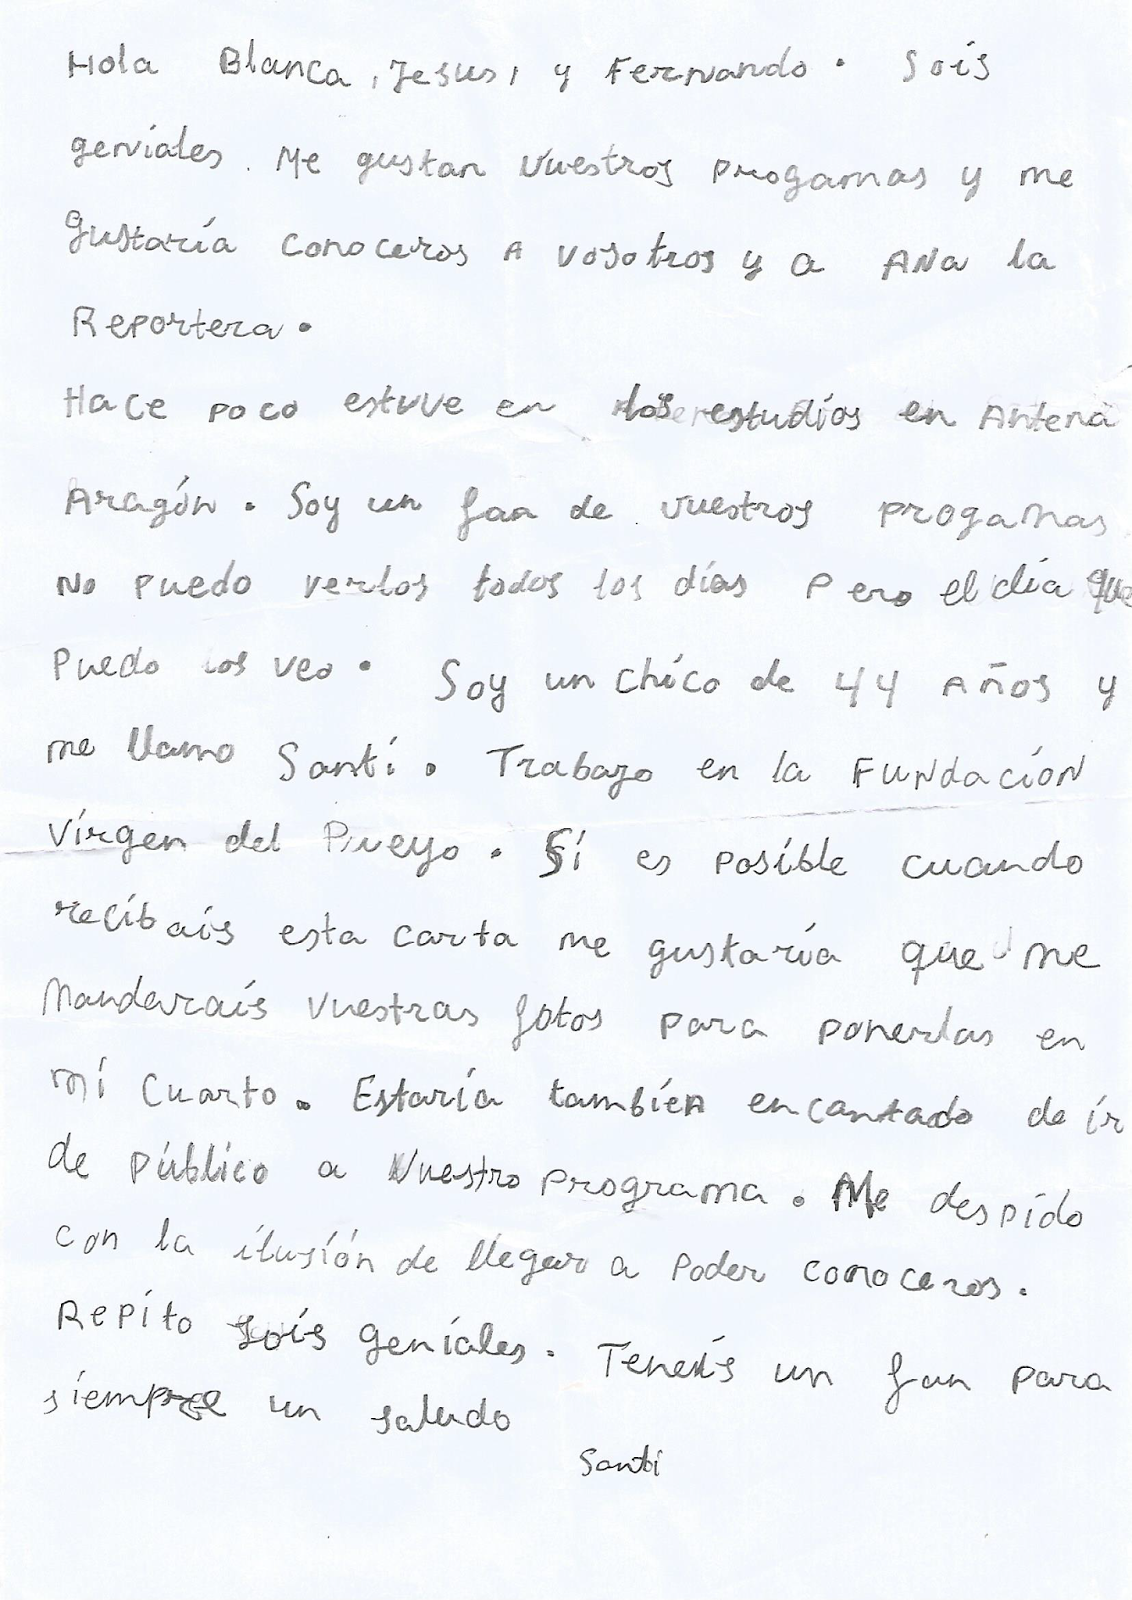 Hola Blanca, Jesus, y Fernando. Sois
geniales. Me gustan vuestros progamas y me
gustaría conoceros A vosotros y a ANa la
Reportera.
Hace poco estuve en los estudios en Antena
Aragón. Soy un faa de vuestros progamas
No puedo verlos todos los días pero el día que
puedo los veo. Soy un chico de 44 Años y
me llamo Santi. Trabajo en la FUNdación
Vírgen del Pueyo. Sí es posible cuando
recibais esta carta me gustaría que me
Manderaís vuestras fotos para ponerlas en
mí cuarto. Estaría también encantado de ír
de público a vuestro programa. Me despído
con la ilusión de llegar a poder conoceros.
Repito soís geniales. Teneís un fan para
siempre un saludo
Santi